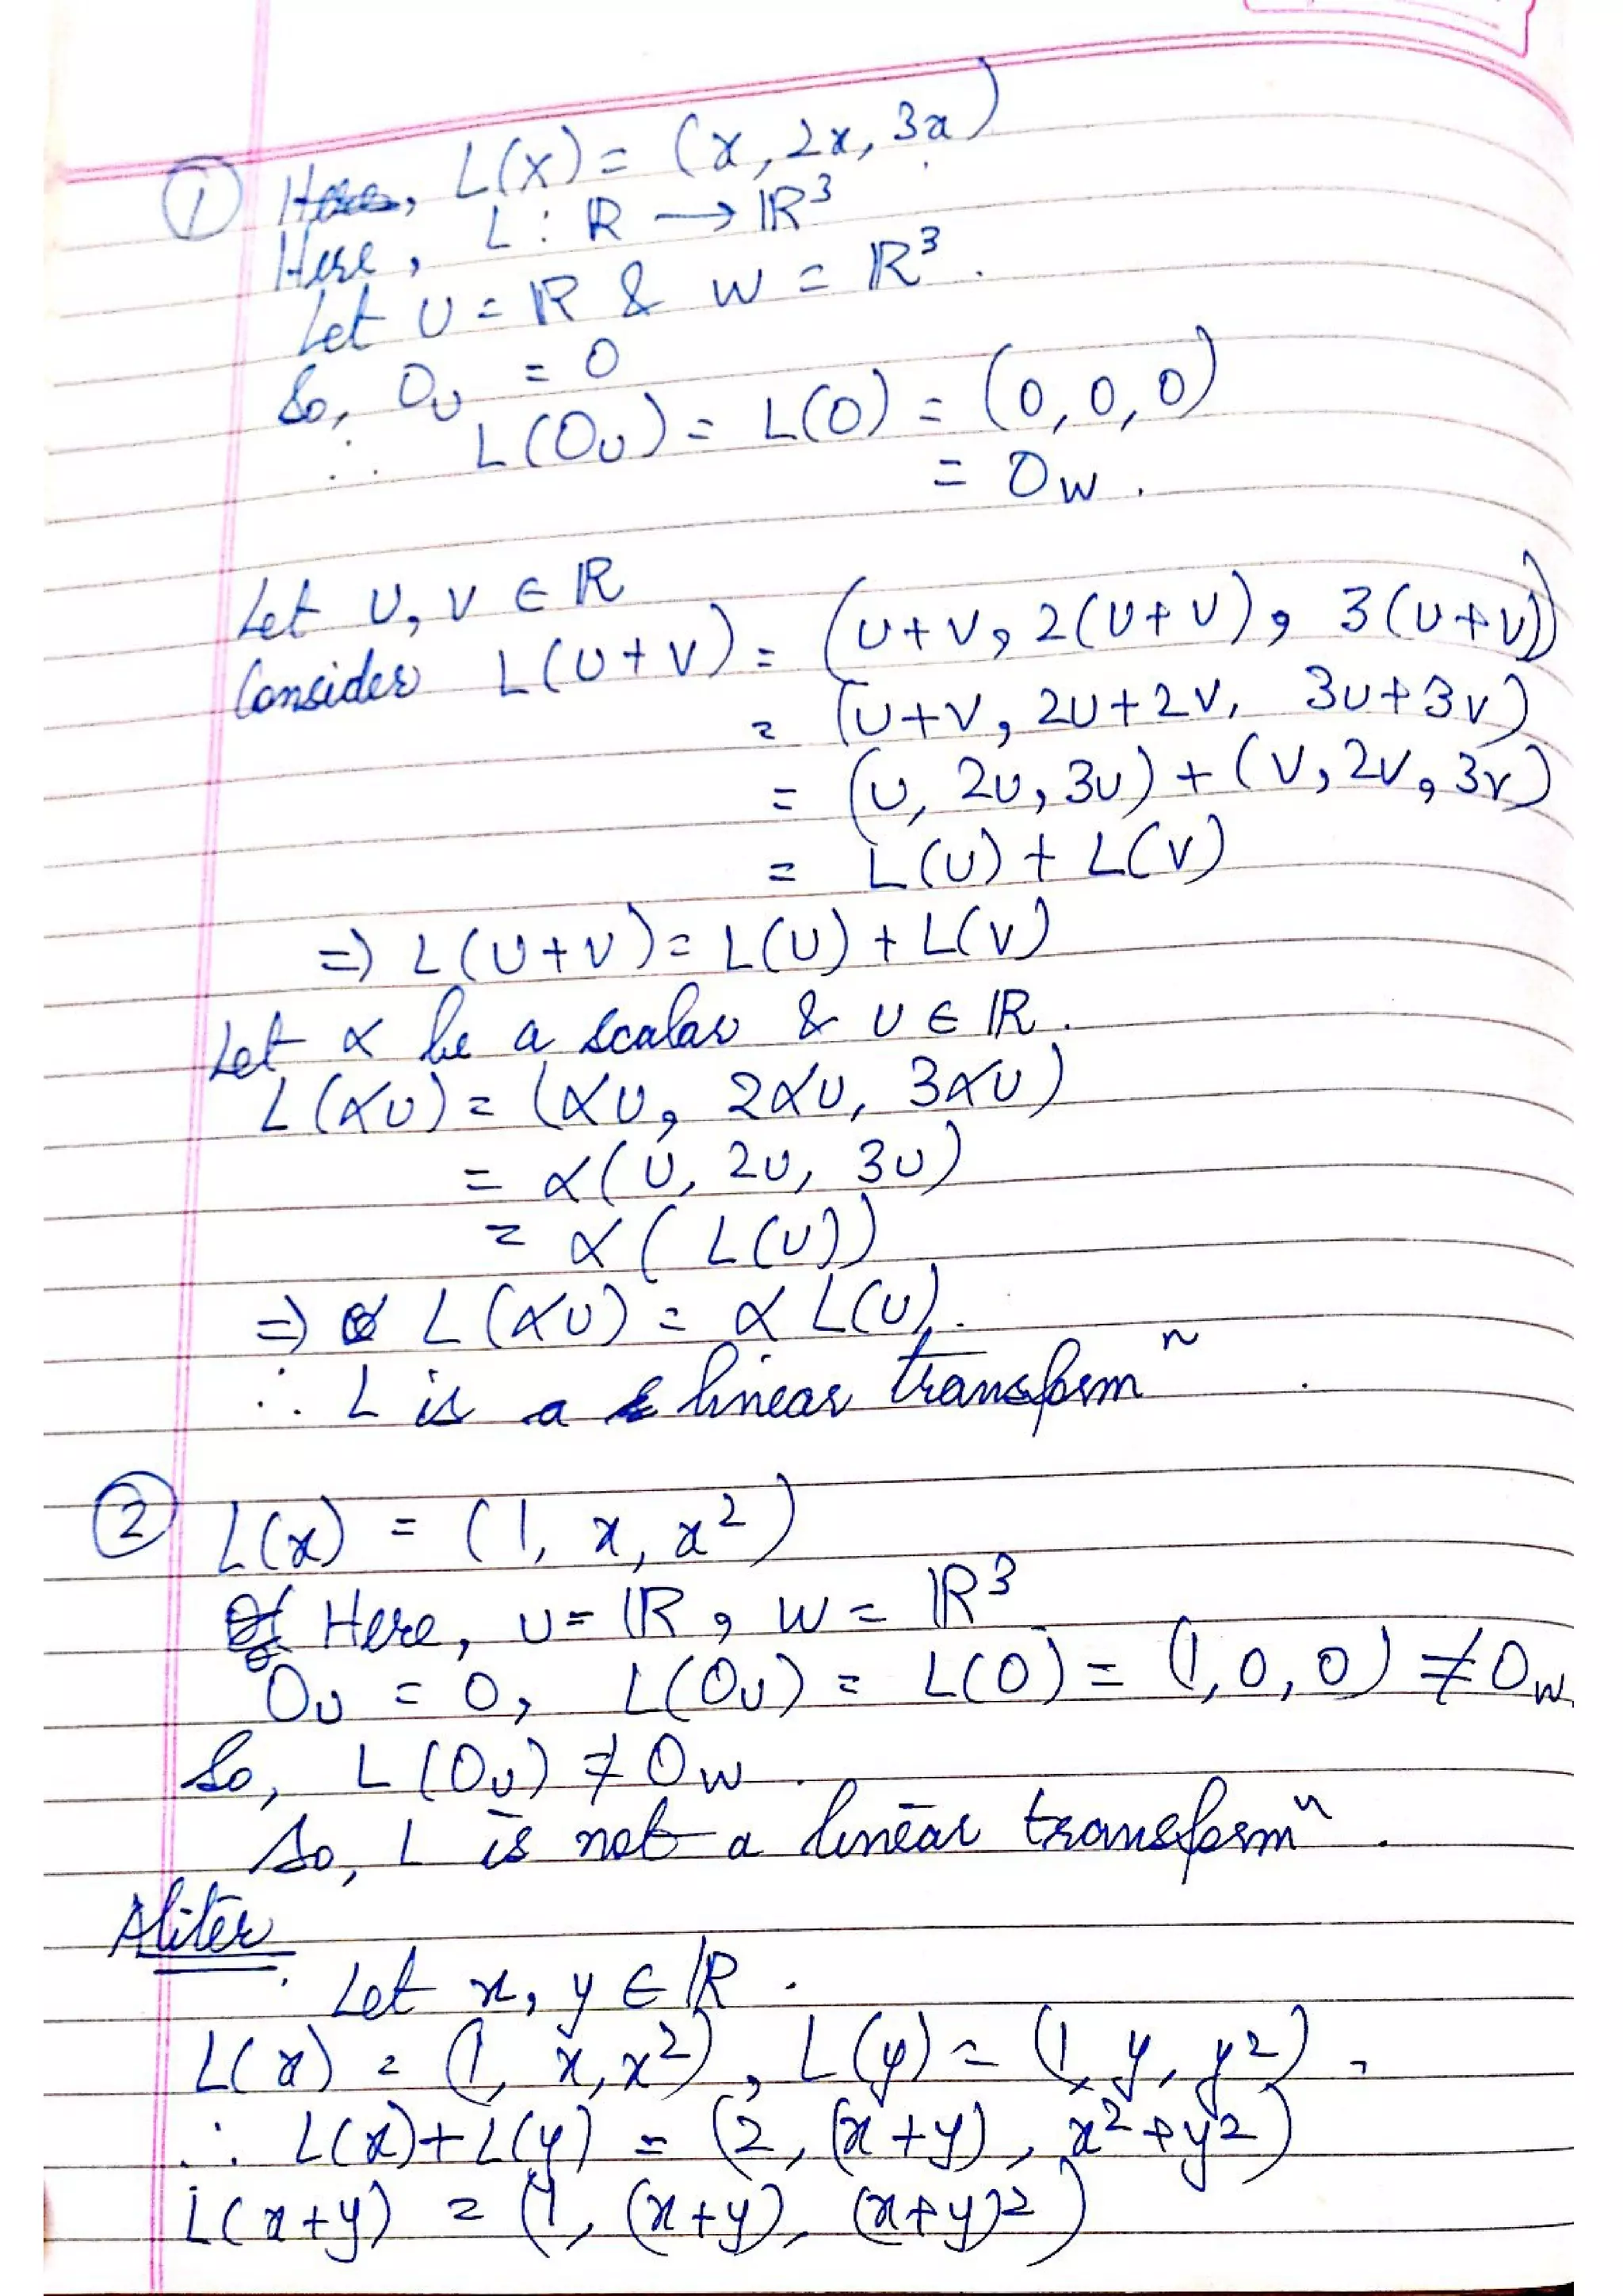 ① Here, L(x) = (x, 2x, 3x)
Here, L : ℝ → ℝ³
Let U = ℝ & W = ℝ³.
So, 0_U = 0
∴ L(0_U) = L(0) = (0, 0, 0)
= 0_W.
Let u, v ∈ ℝ
Consider L(u+v) = (u+v, 2(u+v), 3(u+v))
= (u+v, 2u+2v, 3u+3v)
= (u, 2u, 3u) + (v, 2v, 3v)
= L(u) + L(v)
⇒ L(u+v) = L(u) + L(v)
Let α be a scalar & u ∈ ℝ.
L(αu) = (αu, 2αu, 3αu)
= α(u, 2u, 3u)
= α(L(u))
⇒ L(αu) = α L(u).
∴ L is a linear transformⁿ.
② L(x) = (1, x, x²)
Here, U = ℝ, W = ℝ³
0_U = 0, L(0_U) = L(0) = (1, 0, 0) ≠ 0_W
So, L(0_U) ≠ 0_W.
So, L is not a linear transformⁿ.
Aliter
Let x, y ∈ ℝ.
L(x) = (1, x, x²), L(y) = (1, y, y²).
∴ L(x)+L(y) = (2, (x+y), x²+y²)
L(x+y) = (1, (x+y), (x+y)²)